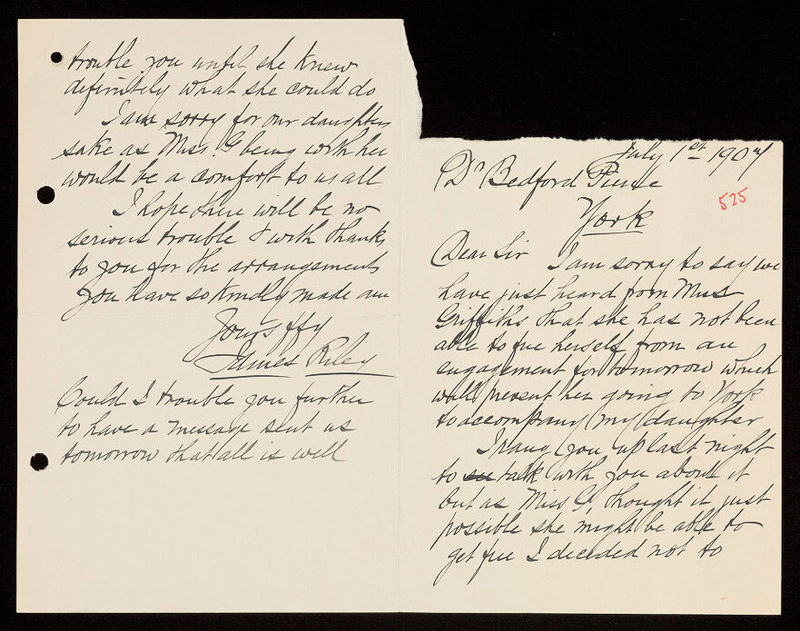 July 1st 1907
Dr Bedford Pierce
York
525
Dear Sir I am sorry to say we
have just heard from Miss
Griffiths that she has not been
able to free herself from an
engagement for tomorrow which
will prevent her going to York
to accompany my daughter
I rang you up last night
to see talk with you about it
but as Miss G, thought it just
possible she might be able to
get free I decided not to
trouble you until she knew
definitely what she could do
I am sorry for our daughters
sake as Miss. G being with her
would be a comfort to us all
I hope there will be no
serious trouble & with thanks
to you for the arrangements
you have so kindly made am
Yours ffy
James Riley
Could I trouble you further
to have a message sent us
tomorrow that all is well